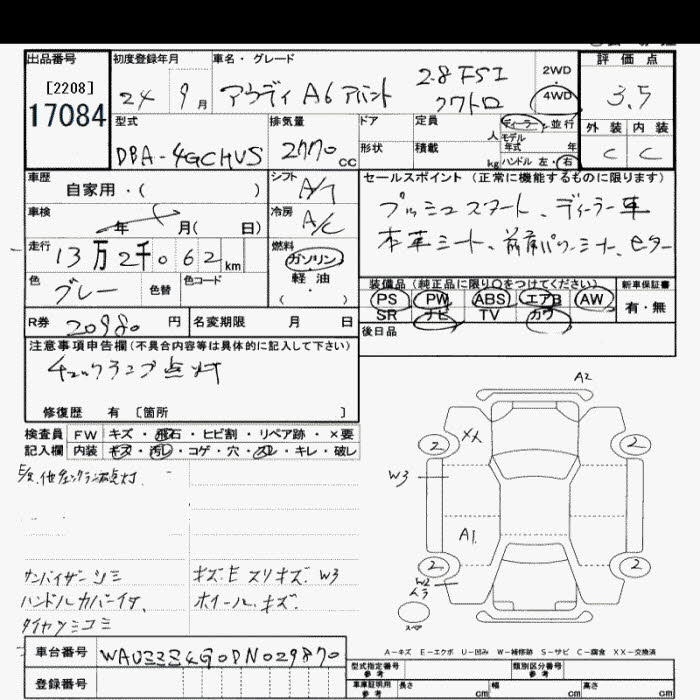 出品番号 初度登録年月 車名・グレード 評価点
[2208] 24 9月 アウディ A6 アバント 2.8FSI クワトロ 2WD 4WD 3.5
17084 型式 排気量 ドア 定員 人 ディーラー・並行 外装 内装
DBA-4GCHVS 2770cc 形状 積載 kg モデル年式 年 ハンドル 左・右 C C
車歴 自家用・( ) シフト A/T セールスポイント (正常に機能するものに限ります)
車検 年 月( 日) 冷房 A/C プッシュスタート、ディーラー車
走行 13万2千062km 燃料 ガソリン 本革シート、
色 グレー 色替 色コード 軽油 ( ・ ) 装備品 (純正品に限り○をつけてください) 新車保証書
PS PW ABS エアB AW 有・無
R券 20980円 名変期限 月 日 SR ナビ TV カワ
注意事項申告欄(不具合内容等は具体的に記入して下さい) 後日品
チェックランプ点灯
修復歴 有 [箇所 ]
A2
検査員 FW キズ・飛石・ヒビ割・リペア跡・×要
記入欄 内装 キズ・汚レ・コゲ・穴・スレ・キレ・破レ
2 XX 2
W3
A1
2 2
サンバイザーシミ キズ.E スリキズ. W3
ハンドルカバーイタ、 ホイールキズ. W2
タイヤツミコミ
スペア
A-キズ E-エクボ U-凹み W-補修跡 S-サビ C-腐食 XX-交換済
車台番号 WAUZZZ4G0DN029870 型式指定番号 参考 類別区分番号 参考
登録番号 車庫証明用 参考 長さ cm 幅 cm 高さ cm